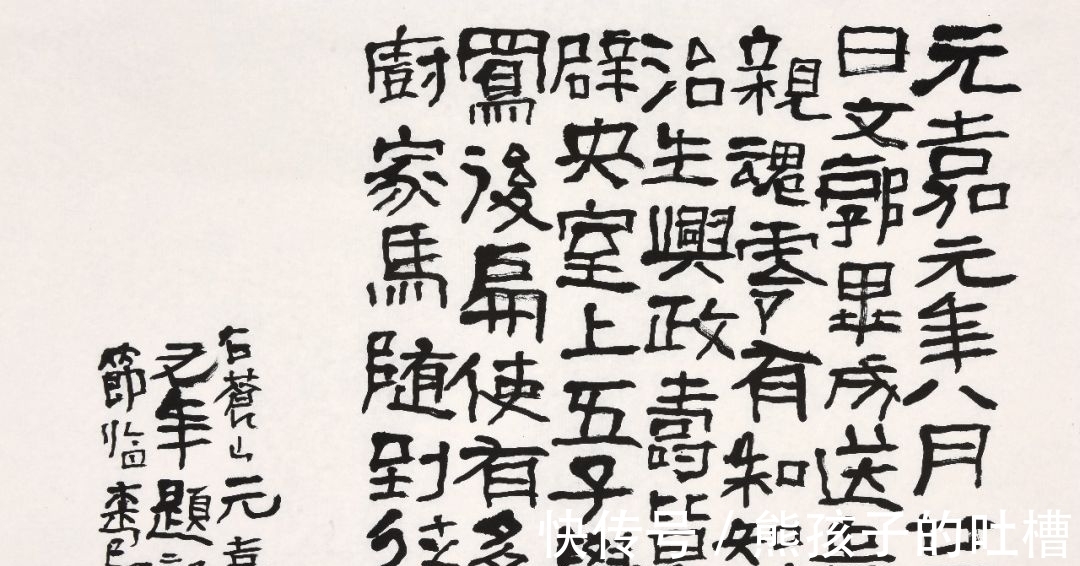 元嘉元年八月
日文郭畢成送
親魂零有知
治生興政壽皆
辟央室上五子
後扁使有多
廚家馬隨到
右蒼山元嘉
年題
節臨
快传号/熊孩子的吐槽